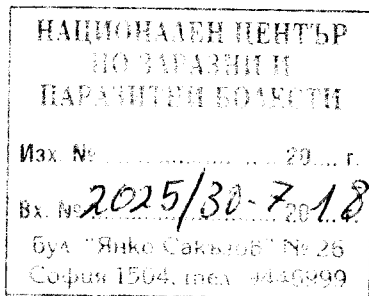 НАЦИОНАЛЕН ЦЕНТЪР
ПО ЗАРАЗНИ И
ПАРАЗИТНИ БОЛЕСТИ
Изх. № ............ 20.... г.
Вх. № 2025/30-7 2018
бул. "Янко Сакъзов" № 26
София 1504, тел. 9446999